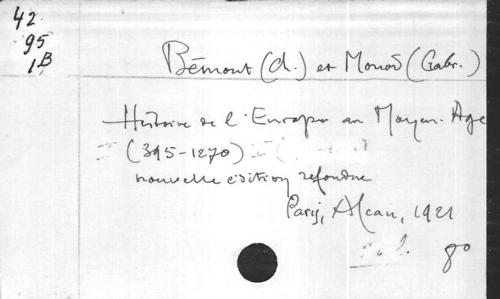 42
95
1B
Bémont (Ch.) et Monod (Gabr.)
Histoire de l'Europe au Moyen-Age
(395-1270)
nouvelle édition refondue
Paris, Alcan, 1921
8°